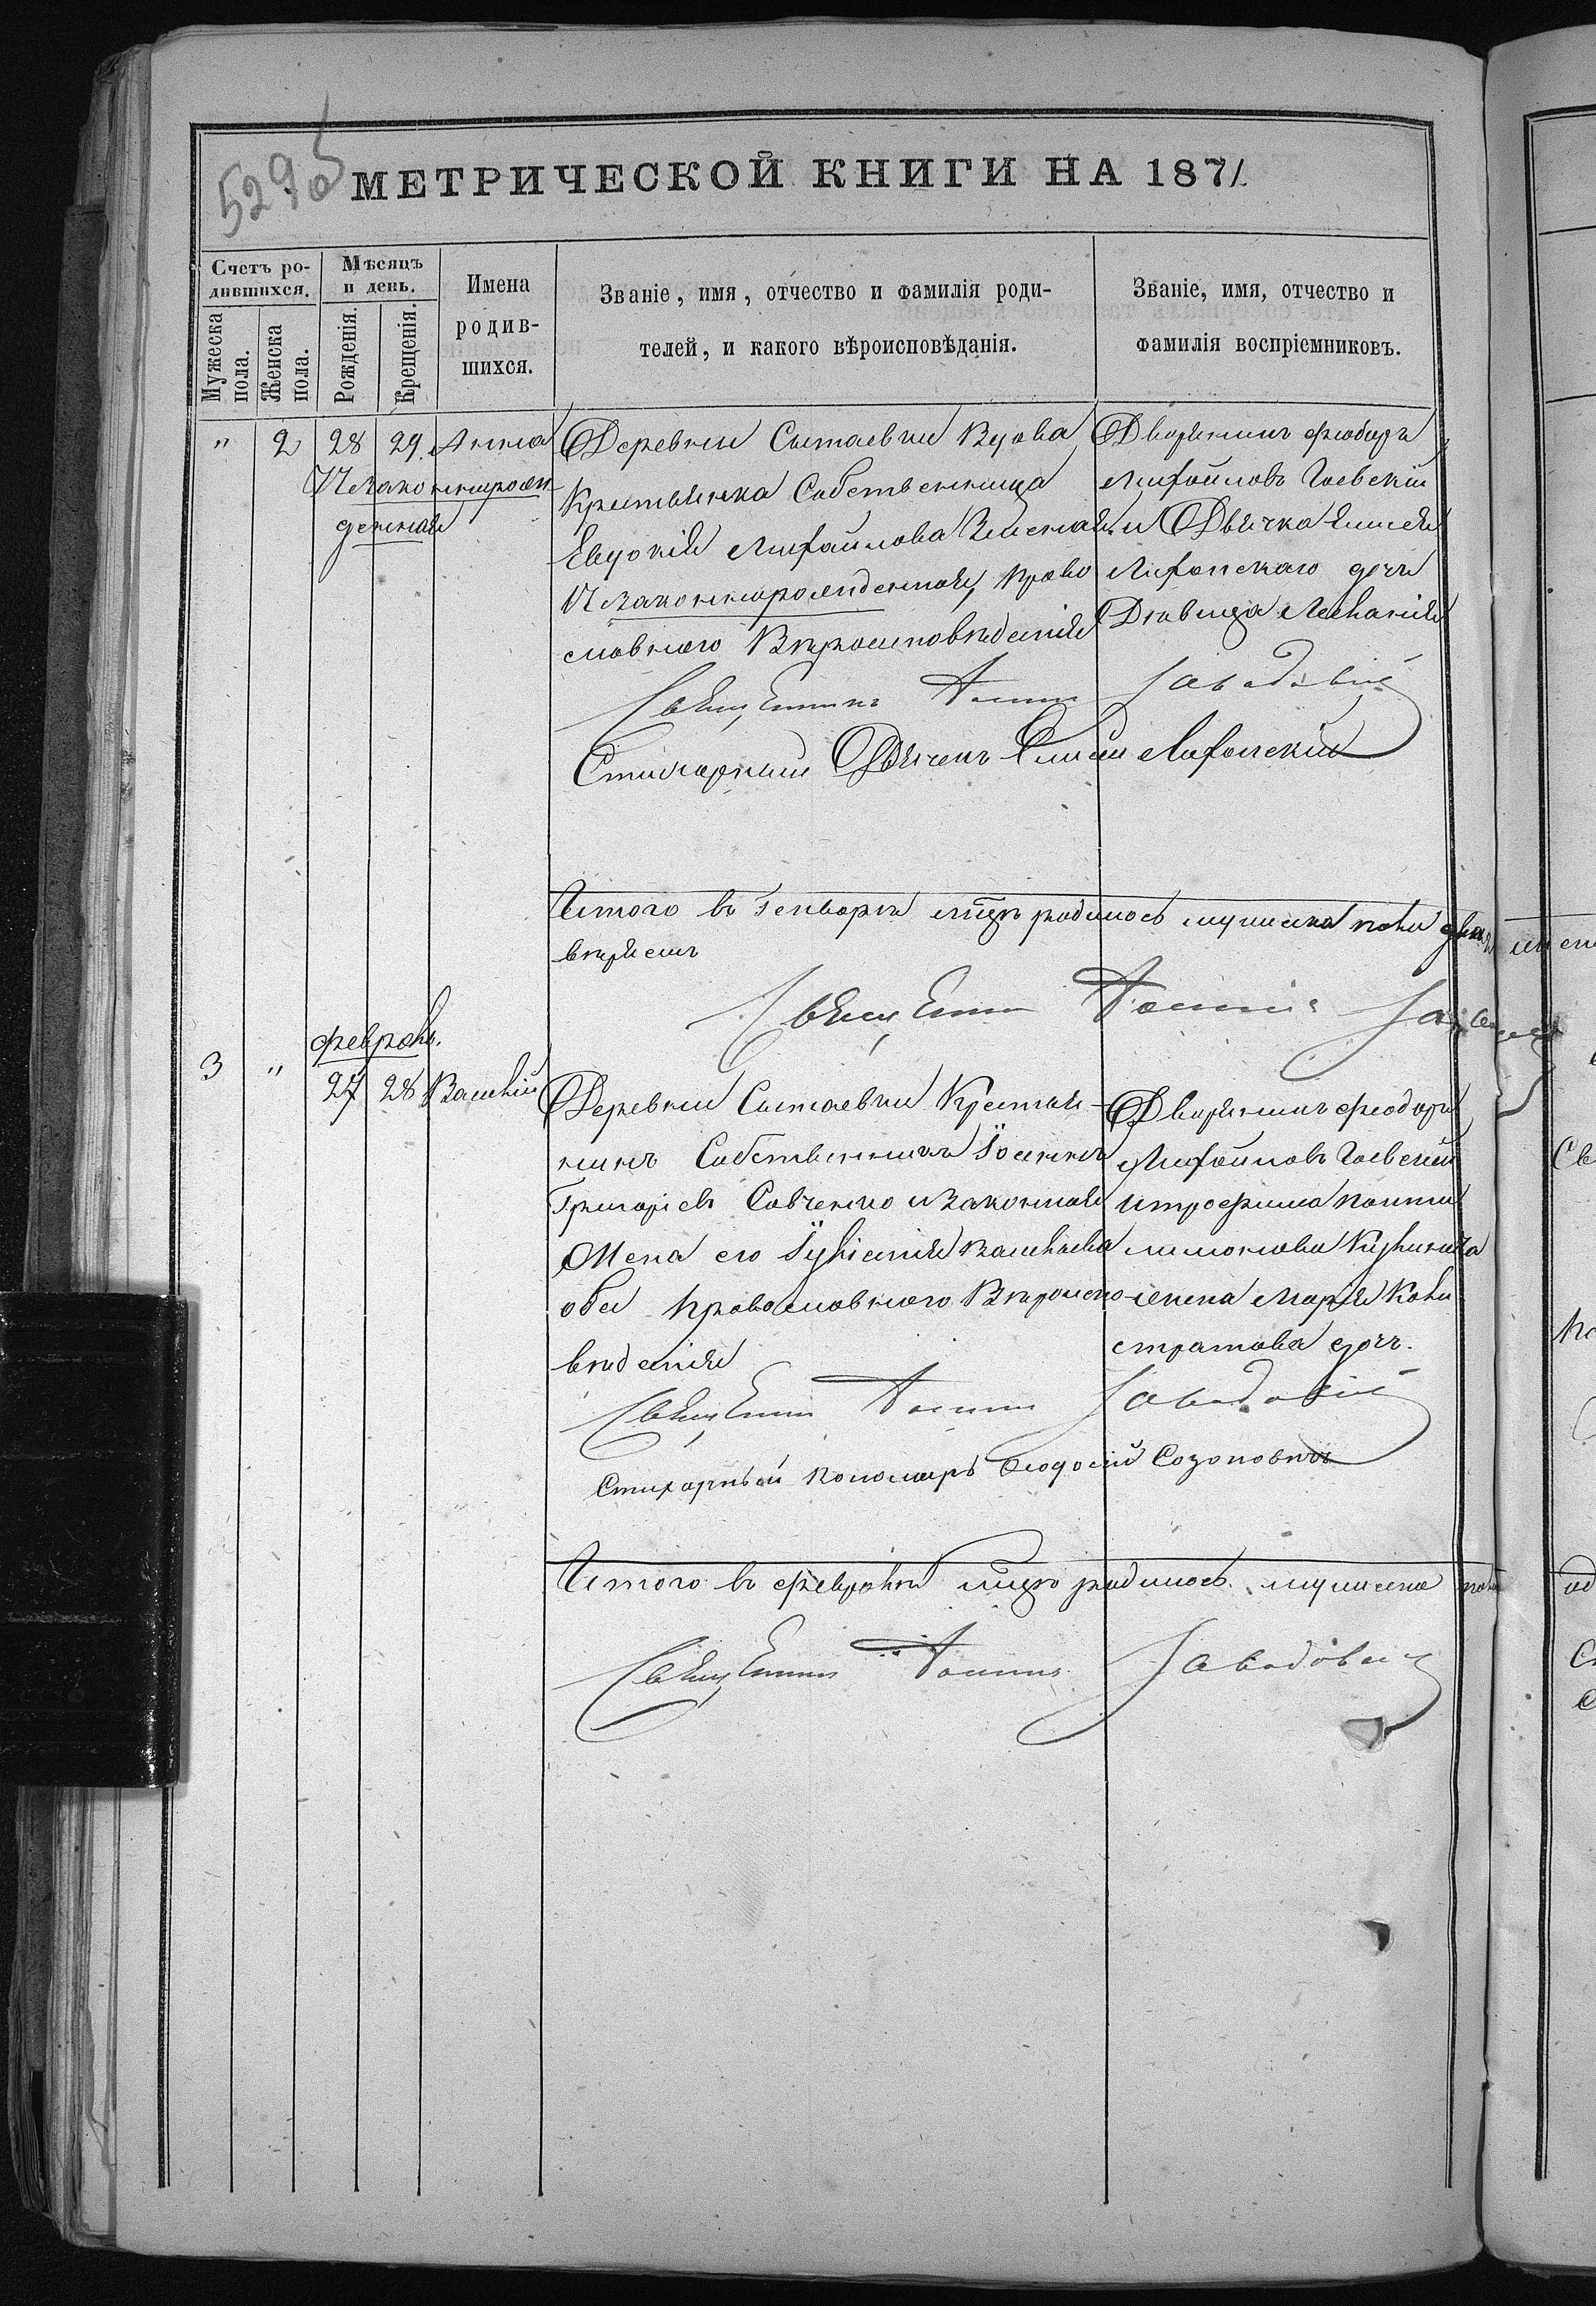 529 об
МЕТРИЧЕСКОЙ КНИГИ НА 1871.
Счетъ ро-
дившихся.
Мужеска
пола.
Женска
пола.
Мѣсяцъ
и день.
Рожденія.
Крещенія.
Имена
родив-
шихся.
Званіе, имя, отчество и фамилія роди-
телей, и какого вѣроисповѣданія.
Званіе, имя, отчество и
фамилія воспріемниковъ.
" 2 28 29. Анна
Незаконнорож-
денная
Деревни Сытаевки Вдова
Крестьянка Собственница
Евдокія Михайлова
Незаконнорожденная, Право
славнаго Вѣроисповѣданія
Дворянинъ Феодоръ
Михайловъ Гаевскій
и Дьячка Елисея
дочь
Дѣвица Меланія
Священникъ Іоаннъ Завадовскій
Стихарный Дьячекъ Елисей
Итого въ Генварѣ мцѣ родилось мужеска пола два
Священникъ Іоаннъ
Февраль.
3 " 27 28 Василій
Деревни Сытаевки Крестья-
нинъ Собственникъ Іоаннъ
Григоріевъ Савченко и законная
Жена его Іуліанія Васильева
оба православнаго Вѣроиспо-
вѣданія
Дворянинъ Феодоръ
Михайловъ Гаевскій
и трофима
жена Марія Кали
стратова дочь.
Священникъ Іоаннъ Завадовскій
Стихарный Пономарь Феодосій Созоновичъ
Итого въ февралѣ мцѣ родилось мужеска пола
Священникъ Іоаннъ Завадовскій